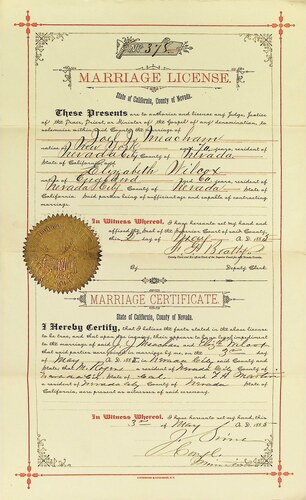 No 375
MARRIAGE LICENSE.
State of California, County of Nevada.
These Presents are to authorize and license any Judge, Justice
of the Peace, Priest, or Minister of the Gospel of any denomination, to
solemnize within said County the Marriage of
Joel J. Meacham
native of New York aged 70 years, resident of
Nevada City County of Nevada
State of California, and
Elizabeth Wilcox
native of England aged years, resident of
Nevada City County of Nevada State of
California. Said parties being of sufficient age and capable of contracting
marriage.
In Witness Whereof, I have hereunto set my hand and
affixed the Seal of the Superior Court of said County, this
day of May A. D. 188
By Deputy Clerk.
MARRIAGE CERTIFICATE.
State of California, County of Nevada.
I Hereby Certify, that I believe the facts stated in the above license
to be true, and that upon due inquiry there appears to be no legal impediment
to the marriage of said J. J. Meacham and Wilcox
that said parties were joined in marriage by me, on the 3rd day of
May 188 in Nevada City said County and
State; that Rogers a resident of Nevada City County of
Nevada State of Cal and
a resident of Nevada City County of Nevada State of
California, are present as witnesses of said ceremony.
In Witness Whereof, I have hereunto set my hand, this
3rd day of May A. D. 188
J. Sims